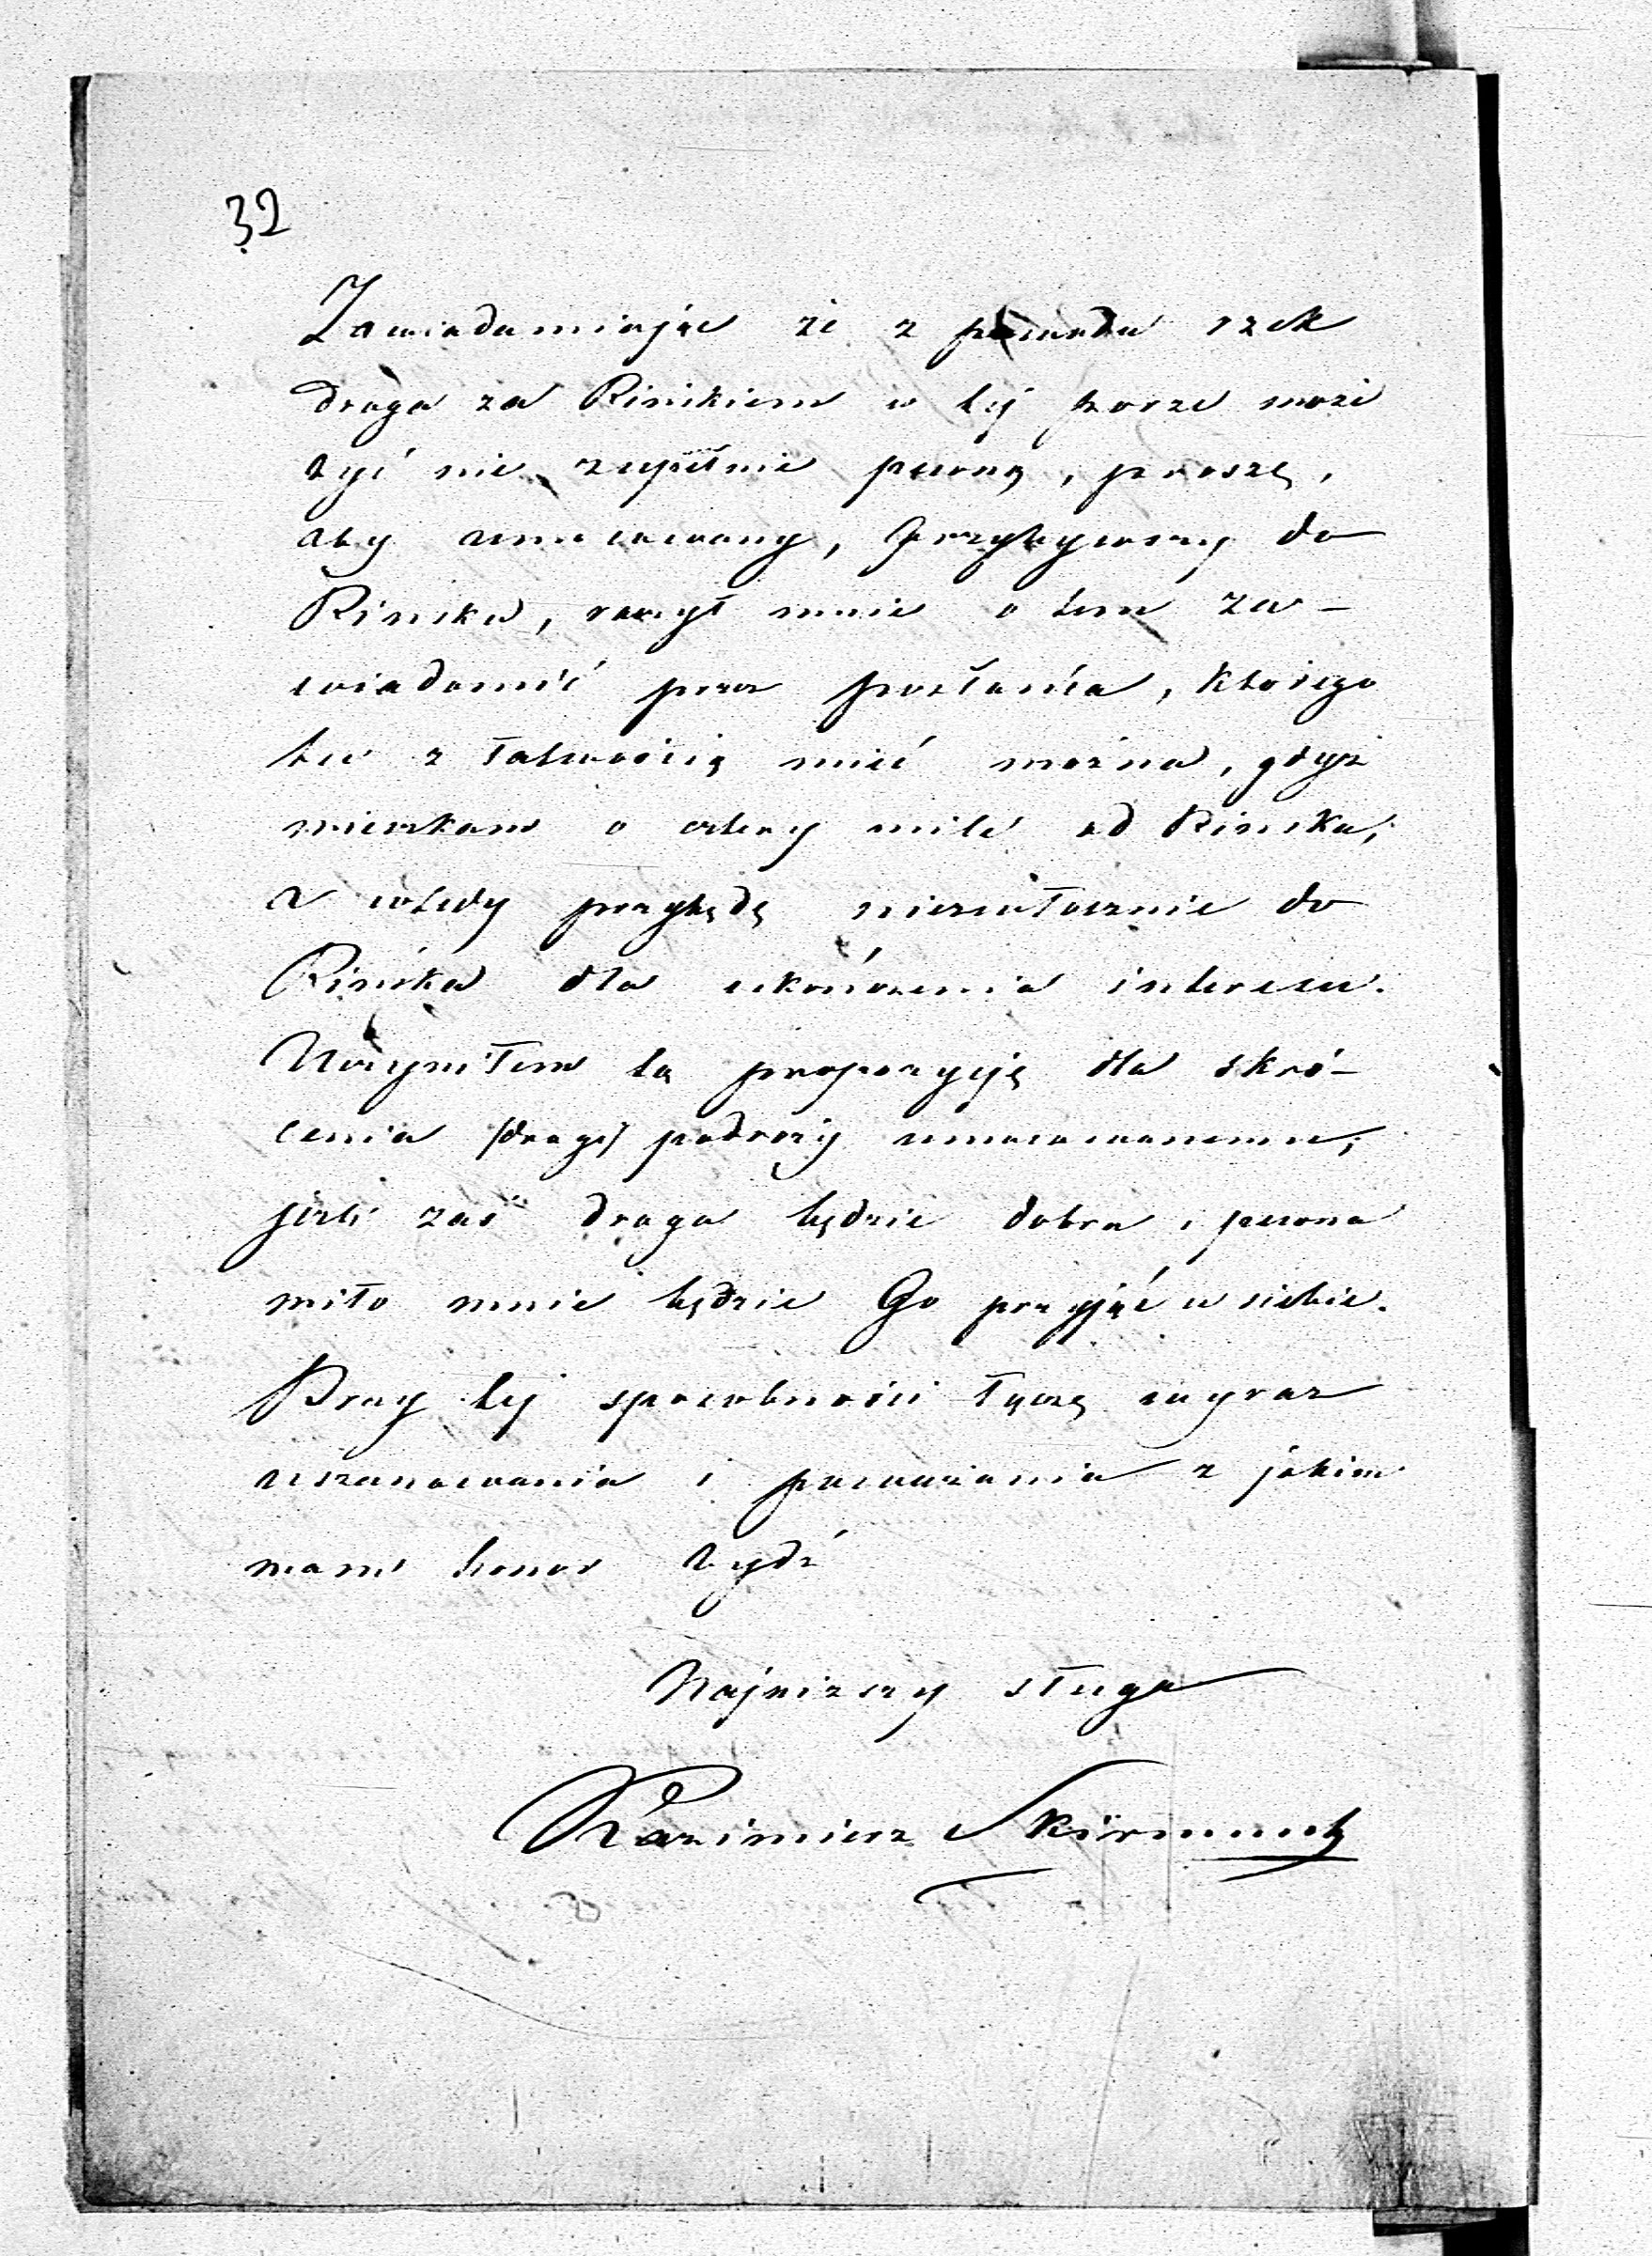 32
Zawiadamiając że z powodu rzek
droga za Pińskiem w tej porze może
być nie zupełnie pewną, proszę,
aby umocowany, przybywszy do
Pińska, raczył mnie o tem za-
wiadomić przez posłańca, którego
tu z łatwością mieć można, gdyż
mieszkam o cztery mile od Pińska,
a wtedy przybędę niezwłocznie do
Pińska dla ukończenia interesu.
Uczyniłem tę propozycję dla skró-
cenia (drogi) podroży umocowanemu;
jeśli zaś droga będzie dobra i pewna
miło mnie będzie Go przyjąć u siebie.
Przy tej sposobności łączę wyraz
uszanowania i poważania z jakim
mam honor bydź
Najniższy sługa
Kazimierz Skirmunt